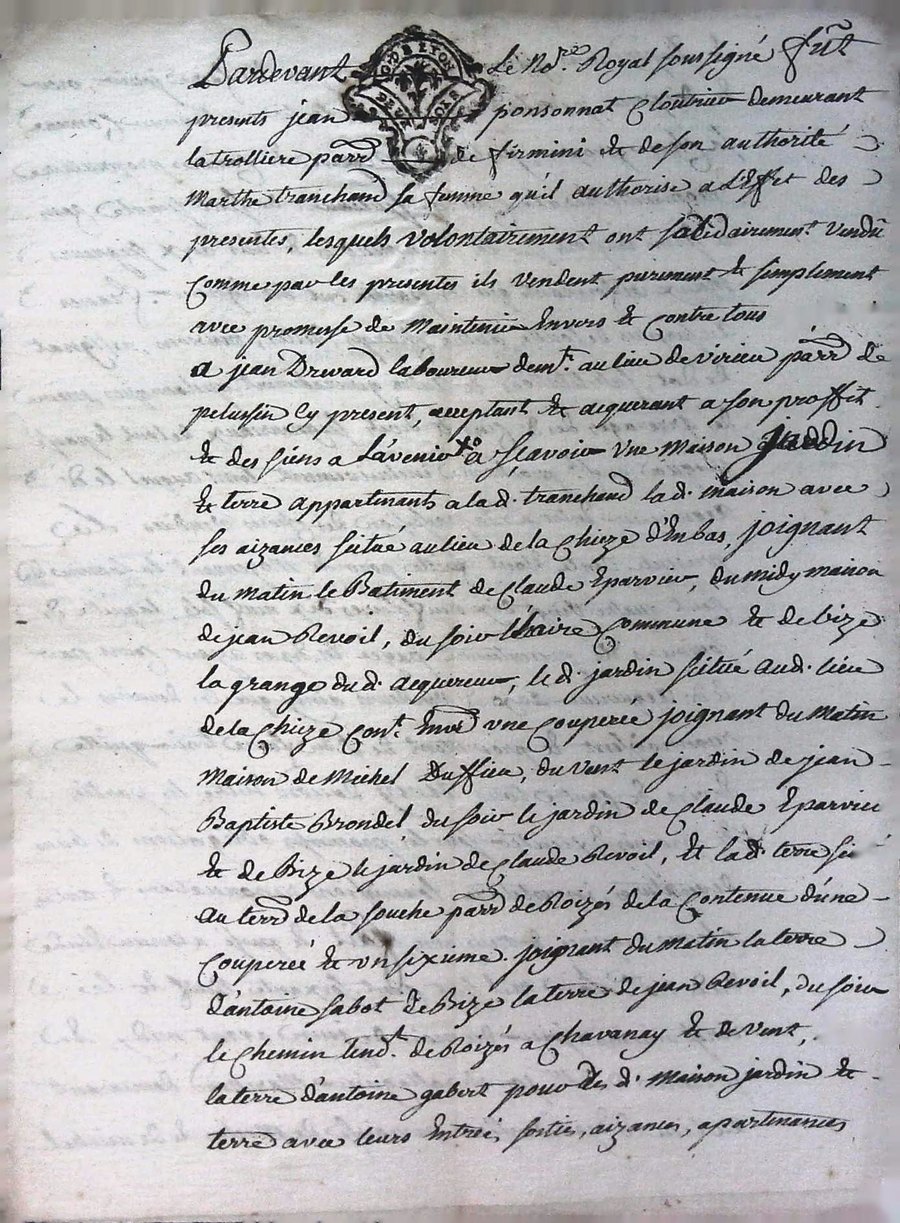 Pardevant Le No.re Royal soussigné fut
presents jean ponsonnat Cloutrier demeurant
latrolliere parr de firmini & de son authorité
Marthe tranchand sa femme qu'il authorise a L'Effet des
presentes, lesquels volontairement ont solidairement vendu
Comme par les presentes ils vendent purement & simplement
avec promesse de Maintenir Envers & Contre tous
a jean Drevard laboureur dem.t au lieu de virieu parr de
pelussin Cy present, acceptant & acquerant a son proffit
& des siens a L'avenir a Sçavoir Une Maison jardin
& terre appartenants a la d. tranchand la d. maison avec
ses aizances situé au lieu de la Chieze d'En bas, joignant
du Matin le Batiment de Claude Eparvier, du midy maison
de jean Revoil, du soir L'haire Commune & de bize
la grange du d. acquereur, le d. jardin situé au d. lieu
de la Chieze Con.t Env une Couperee joignant du Matin
maison de Michel Duffieu, du vent le jardin de jean
Baptiste Brondel du soir le jardin de Claude Eparvier
& de Bize le jardin de Claude Revoil, & la d. terre si
au terr de la souche parr de Roizés de la Contenue d'une
Couperéé & un sixieme joignant du Matin la terre
d'antoine sabot de Bize la terre de jean Revoil, du soir
le Chemin tend.t de Roizés a Chavanay & de Vent,
la terre d'antoine gabert pour Les d. Maison jardin &
terre avec leurs Entrées, sorties, aizances, apartenances